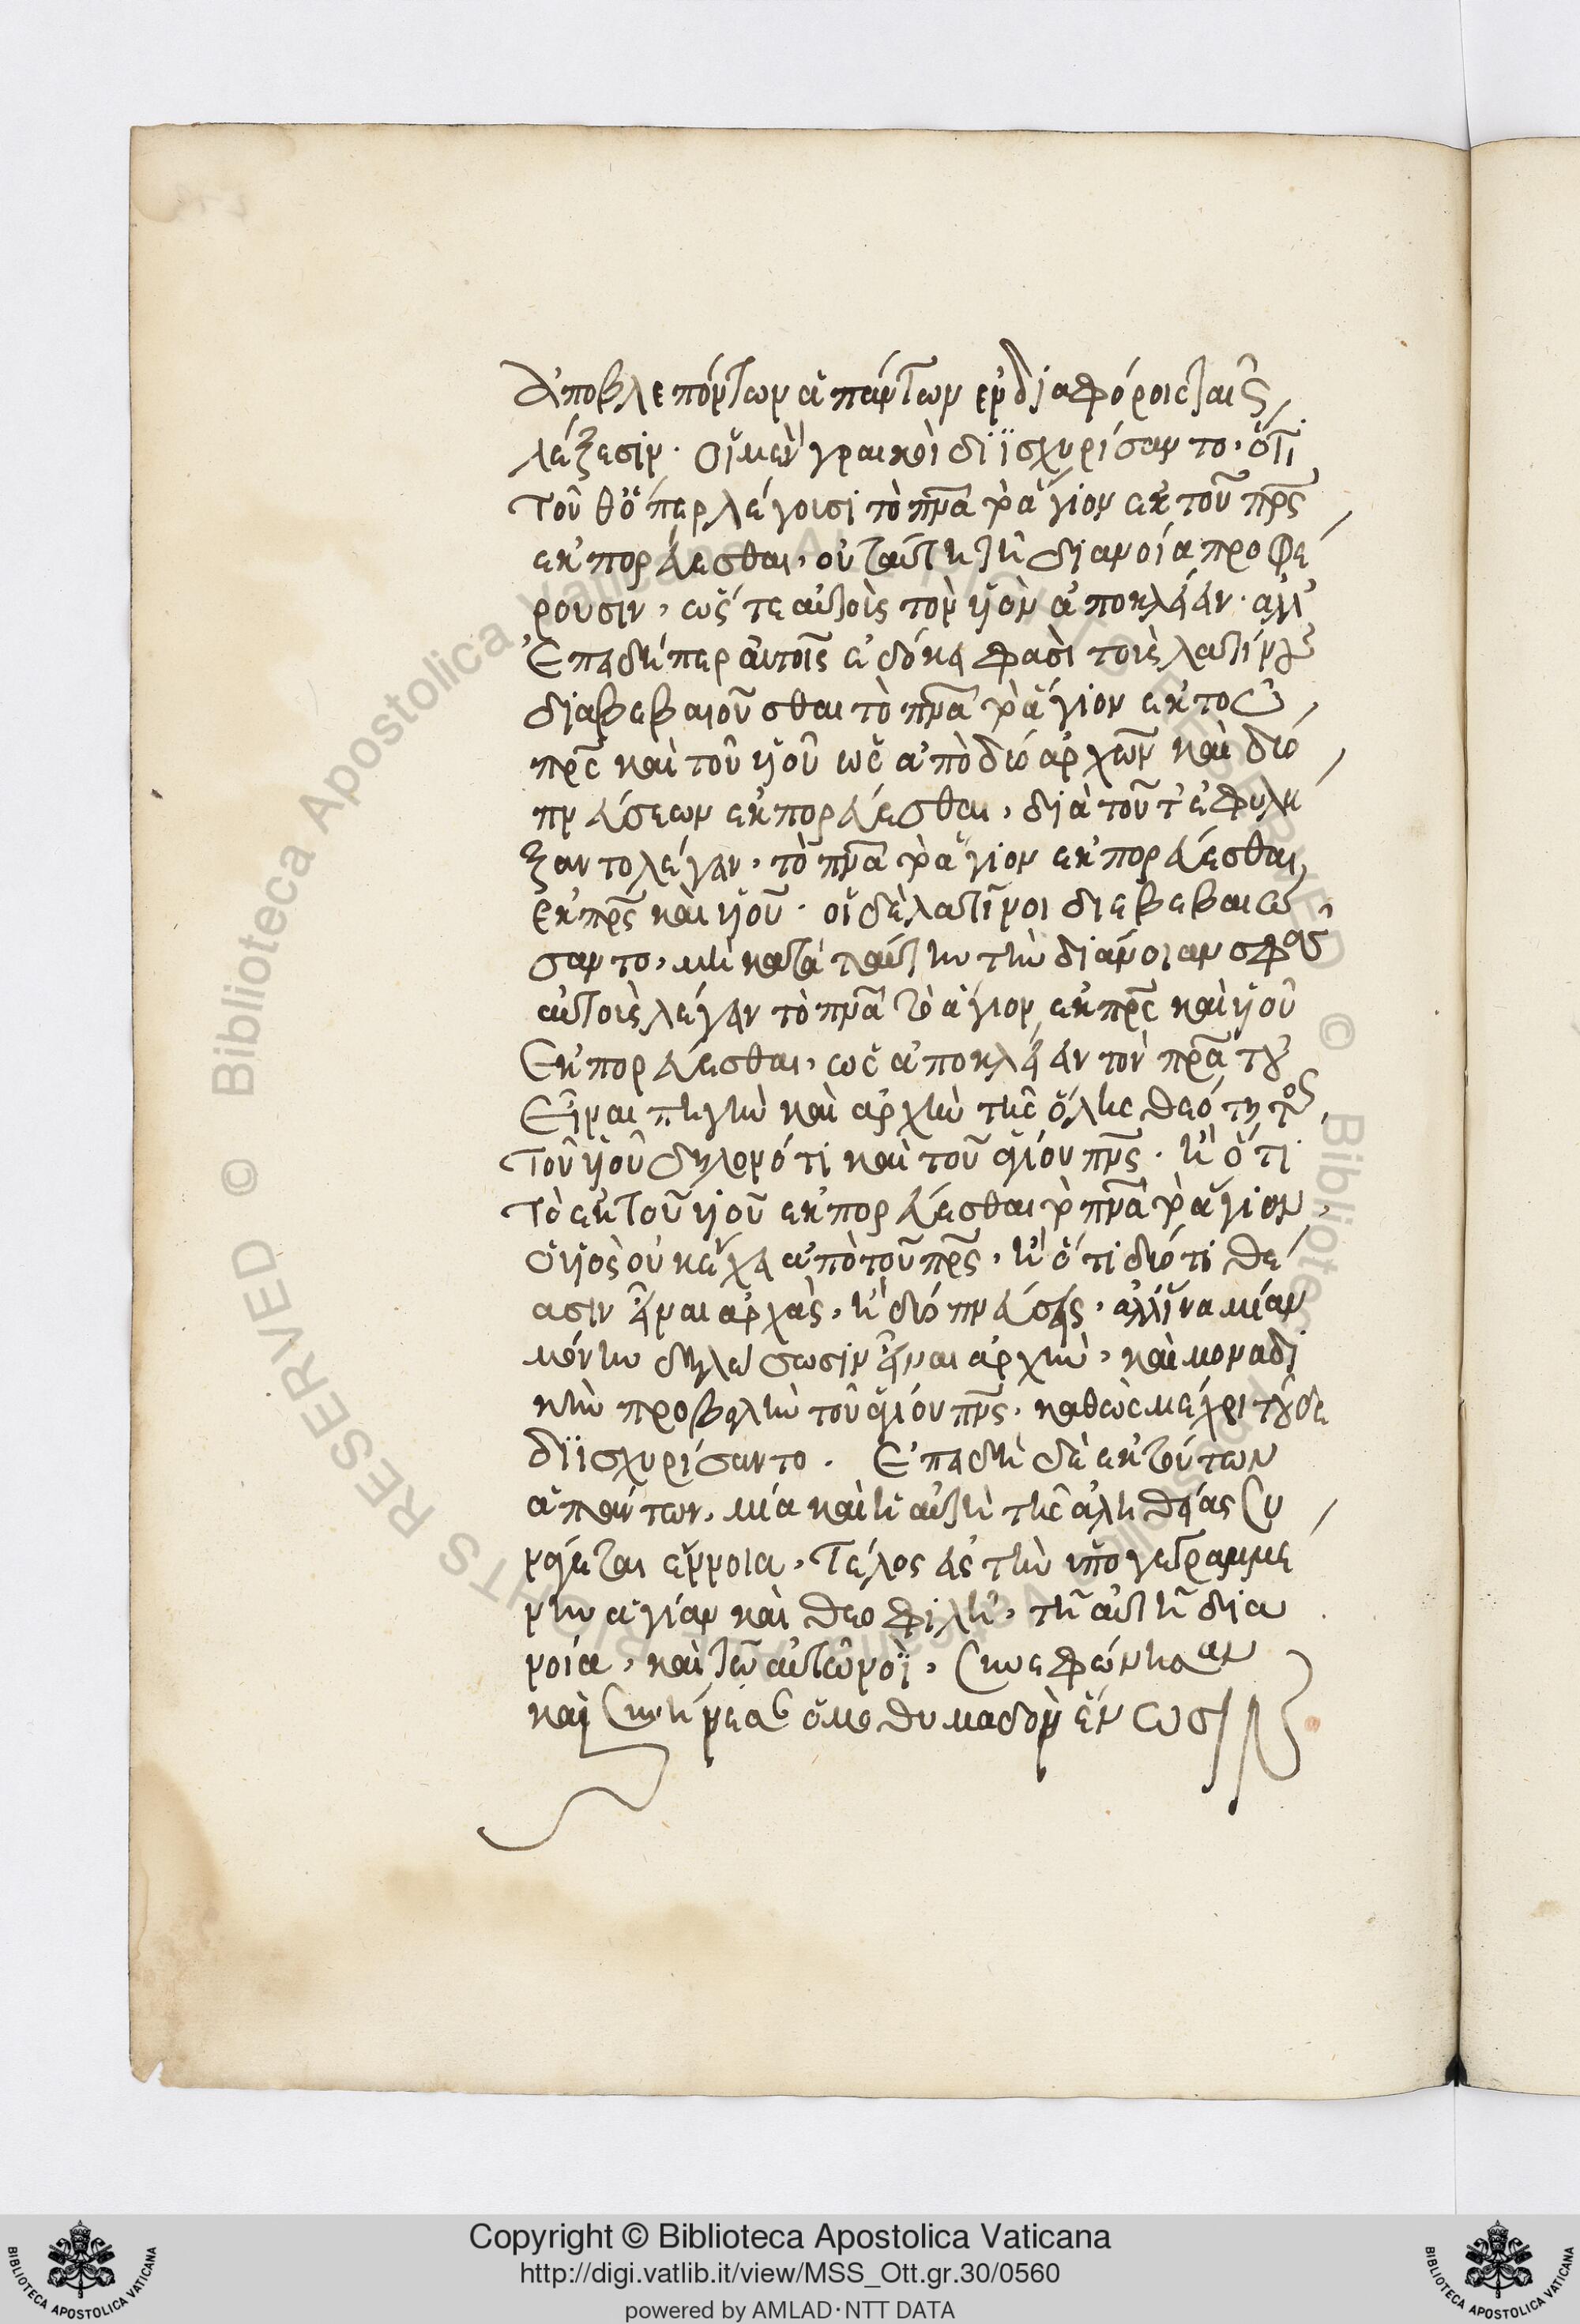 ἀποβλεπόντων ἁπάντων ἐν διαφόροις ταῖς
λέξεσιν. οἱ μὲν γραικοὶ διϊσχυρίσαντο, ὅτι
τοῦθ' ὅπερ λέγουσι τὸ πνᾶ τὸ ἅγιον ἐκ τοῦ πρς
ἐκπορεύεσθαι, οὐ ταύτη τῆ διανοία προφέ
ρουσιν, ὥστε αὐτοὺς τὸν υἱὸν ἀποκλείειν. ἀλλ'
ἐπειδήπερ αὐτοῖς ἐδόκει φασὶ τοὺς λατίνους
διαβεβαιοῦσθαι τὸ πνᾶ τὸ ἅγιον ἐκ τοῦ
πρς καὶ τοῦ υἱοῦ ὡς ἀπὸ δύο ἀρχῶν καὶ δύο
πνεύσεων ἐκπορεύεσθαι, διὰ τοῦτ' ἐφυλά
ξαντο λέγειν, τὸ πνᾶ τὸ ἅγιον ἐκπορεύεσθαι
ἐκ πρς καὶ υἱοῦ. οἱ δὲ λατῖνοι διεβεβαιώ
σαντο, μὴ κατὰ ταύτην τὴν διάνοιαν σφᾶς
αὐτοὺς λέγειν τὸ πνᾶ τὸ ἅγιον ἐκ πρς καὶ υἱοῦ
ἐκπορεύεσθαι, ὡς ἀποκλείειν τὸν πρᾶ τοῦ
εἶναι πηγὴν καὶ ἀρχὴν τῆς ὅλης θεότητος,
τοῦ υἱοῦ δηλονότι καὶ τοῦ ἁγίου πνς. ἢ ὅτι
τὸ ἐκ τοῦ υἱοῦ ἐκπορεύεσθαι τὸ πνᾶ τὸ ἅγιον,
ὁ υἱὸς οὐκ ἔχει ἀπὸ τοῦ πρς, ἢ ὅτι δύο τι θέ
ασιν εἶναι ἀρχὰς, ἢ δύο πνεύσεις, ἀλλ' ἵνα μίαν
μόνην δηλώσωσιν εἶναι ἀρχὴν, καὶ μοναδι
κὴν προβολὴν τοῦ ἁγίου πνς, καθὼς μέχρι τοῦδε
διϊσχυρίσαντο. Ἐπειδὴ δὲ ἐκ τούτων
ἁπάντων, μία καὶ ἡ αὐτὴ τῆς ἀληθείας συ
νάγεται ἔννοια, τέλος εἰς τὴν ὑπογεγραμμέ
νην ἁγίαν καὶ θεοφιλῆ, τῆ αὐτῆ δια
νοία, καὶ τῶ αὐτῶ νοῒ, συνεφώνησαν
καὶ συνήνεσαν ὁμοθυμαδὸν ἕνωσιν
Copyright © Biblioteca Apostolica Vaticana
http://digi.vatlib.it/view/MSS_Ott.gr.30/0560
powered by AMLAD·NTT DATA